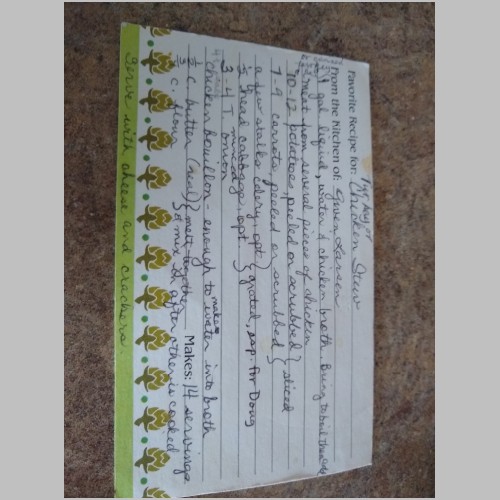 Favorite Recipe for: Turkey or Chicken Stew
From the Kitchen of: Gwen Larsen
gal liquid, water & chicken broth. Bring to boil then add
meat from several pieces of chicken
10-12 potatoes, peeled or scrubbed } sliced
7-9 carrots, peeled or scrubbed
a few stalks celery, opt. } grated, esp. for Doug
1/2 head cabbage, opt
3-4 T minced onion
chicken bouillon - enough to make water into broth
1/3 c butter (real) } melt together Makes: 14 servings
1/3 c. flour & mix in after other is cooked
Serve with cheese and crackers.